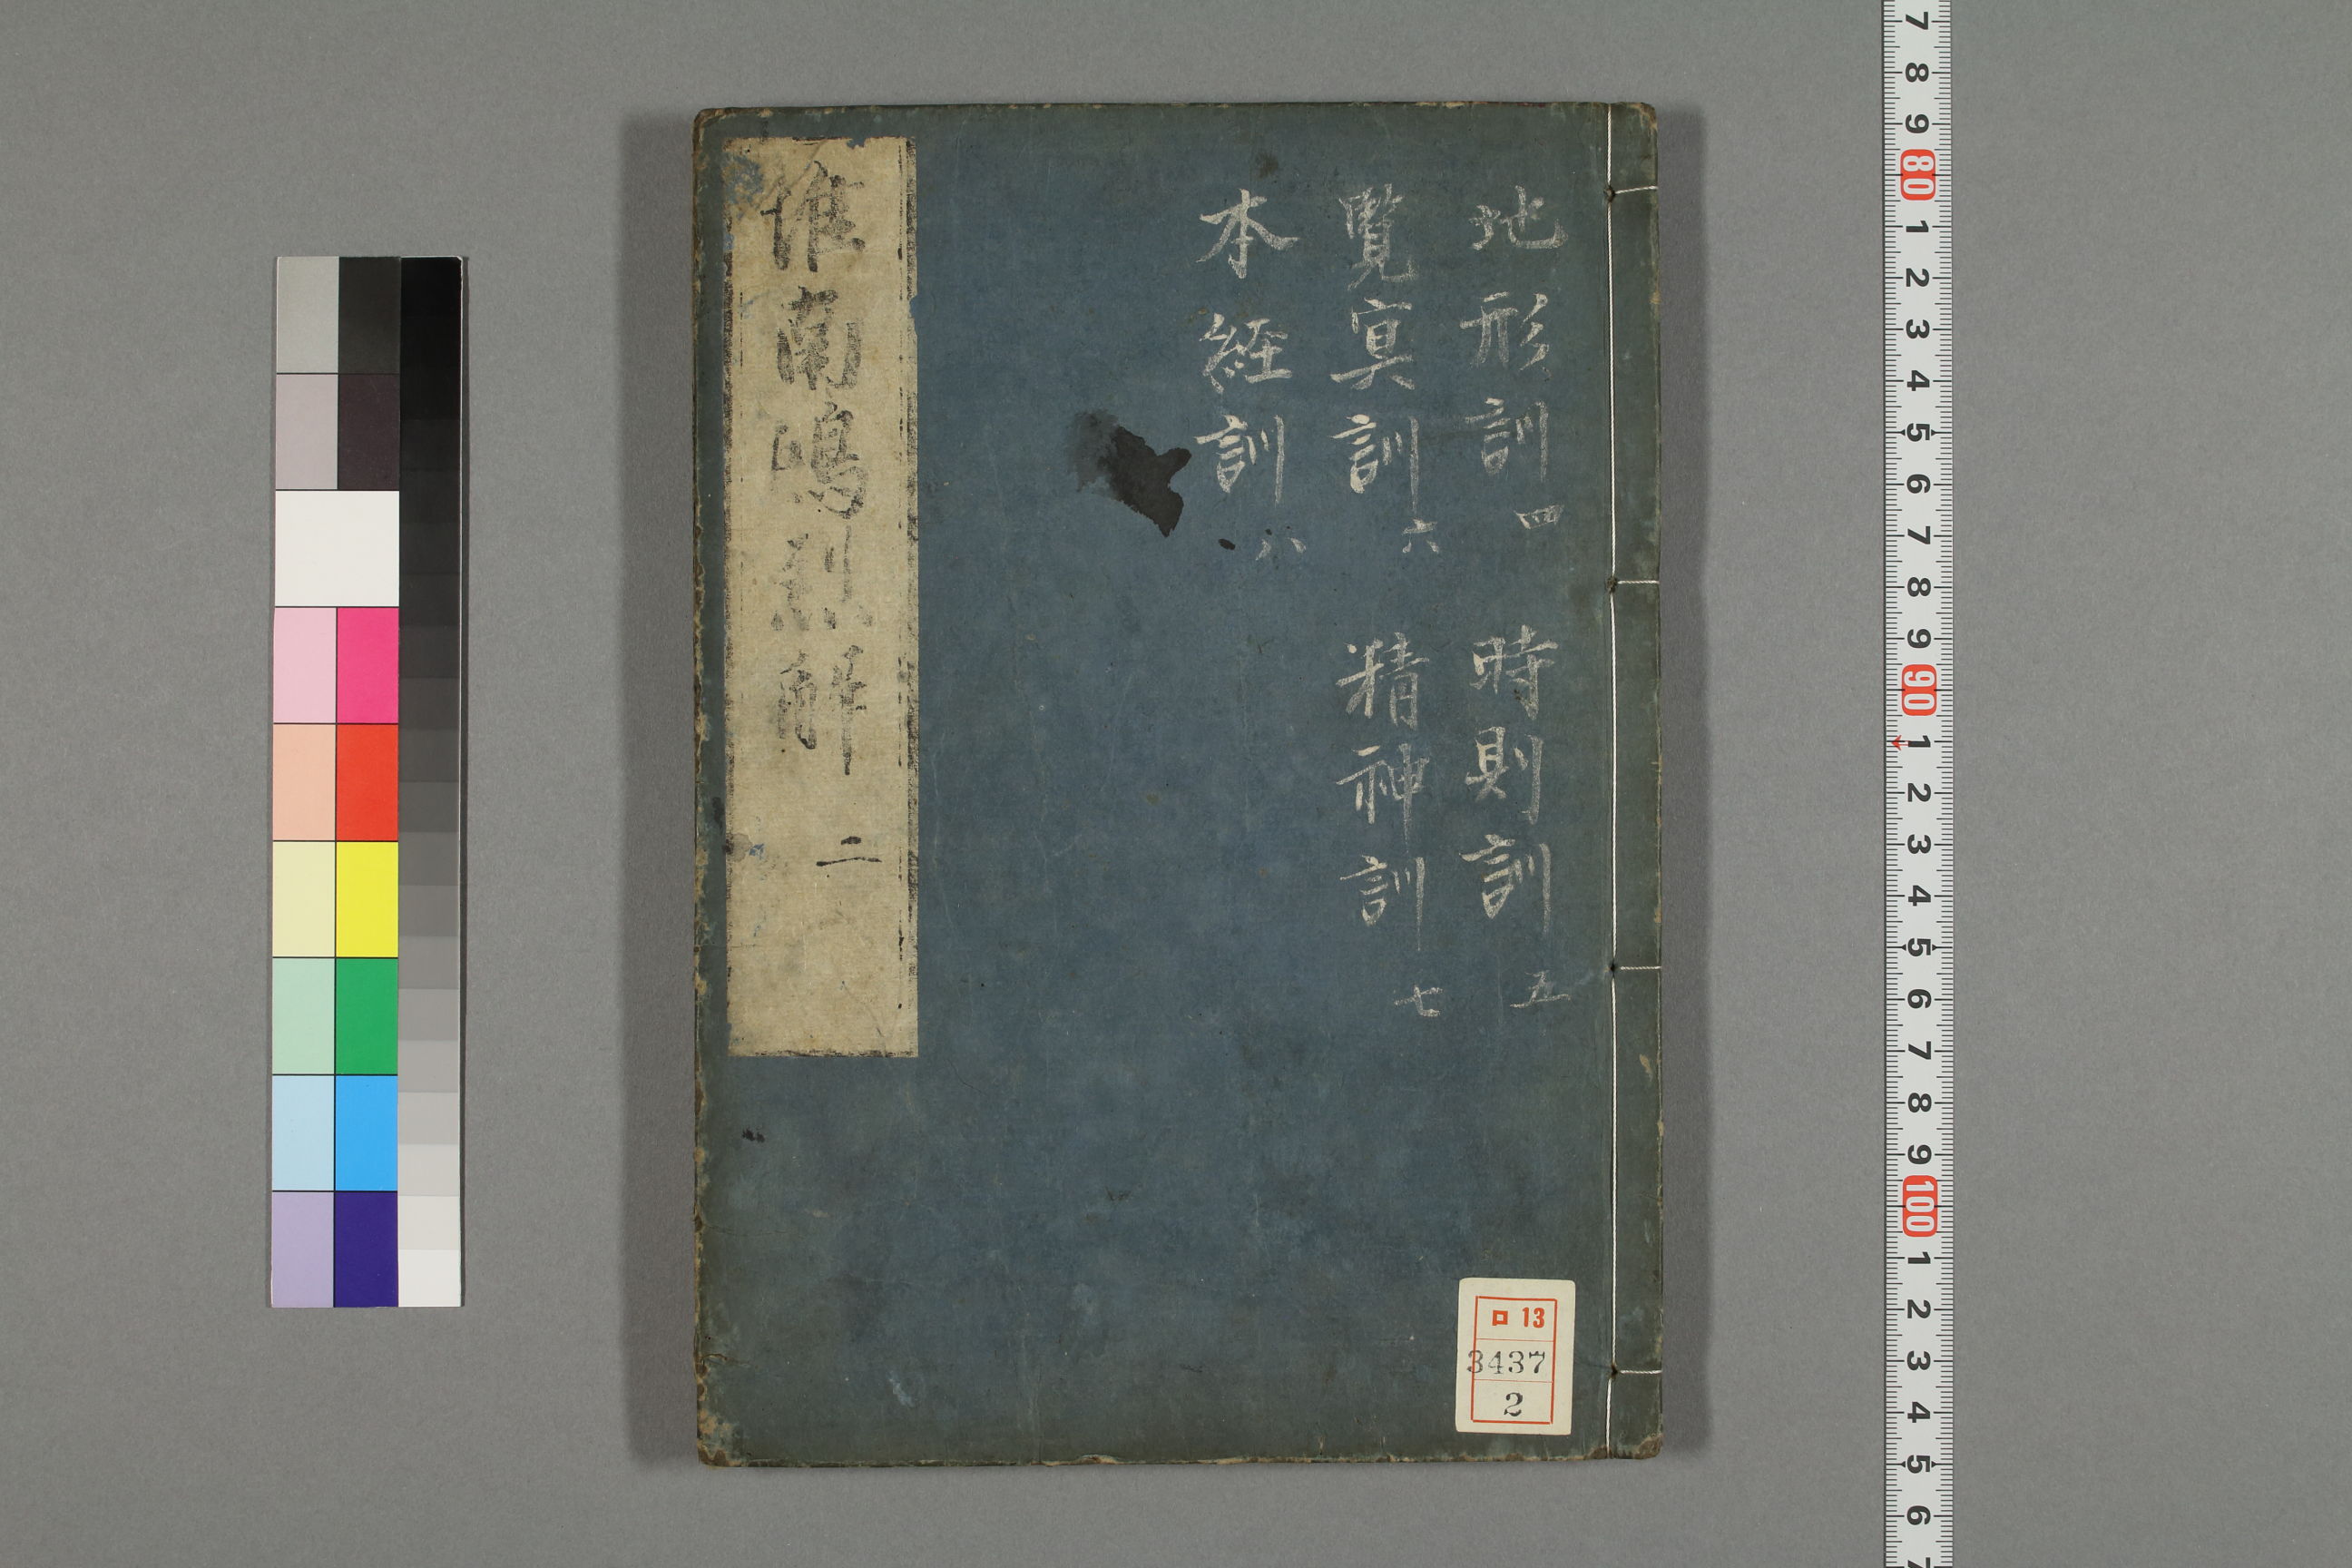 地形訓四 時則訓五
覽冥訓六 精神訓七
本経訓八
淮南鴻烈解 二
ロ 13
3437
2
7 8 9 80 1 2 3 4 5 6 7 8 9 90 1 2 3 4 5 6 7 8 9 100 1 2 3 4 5 6